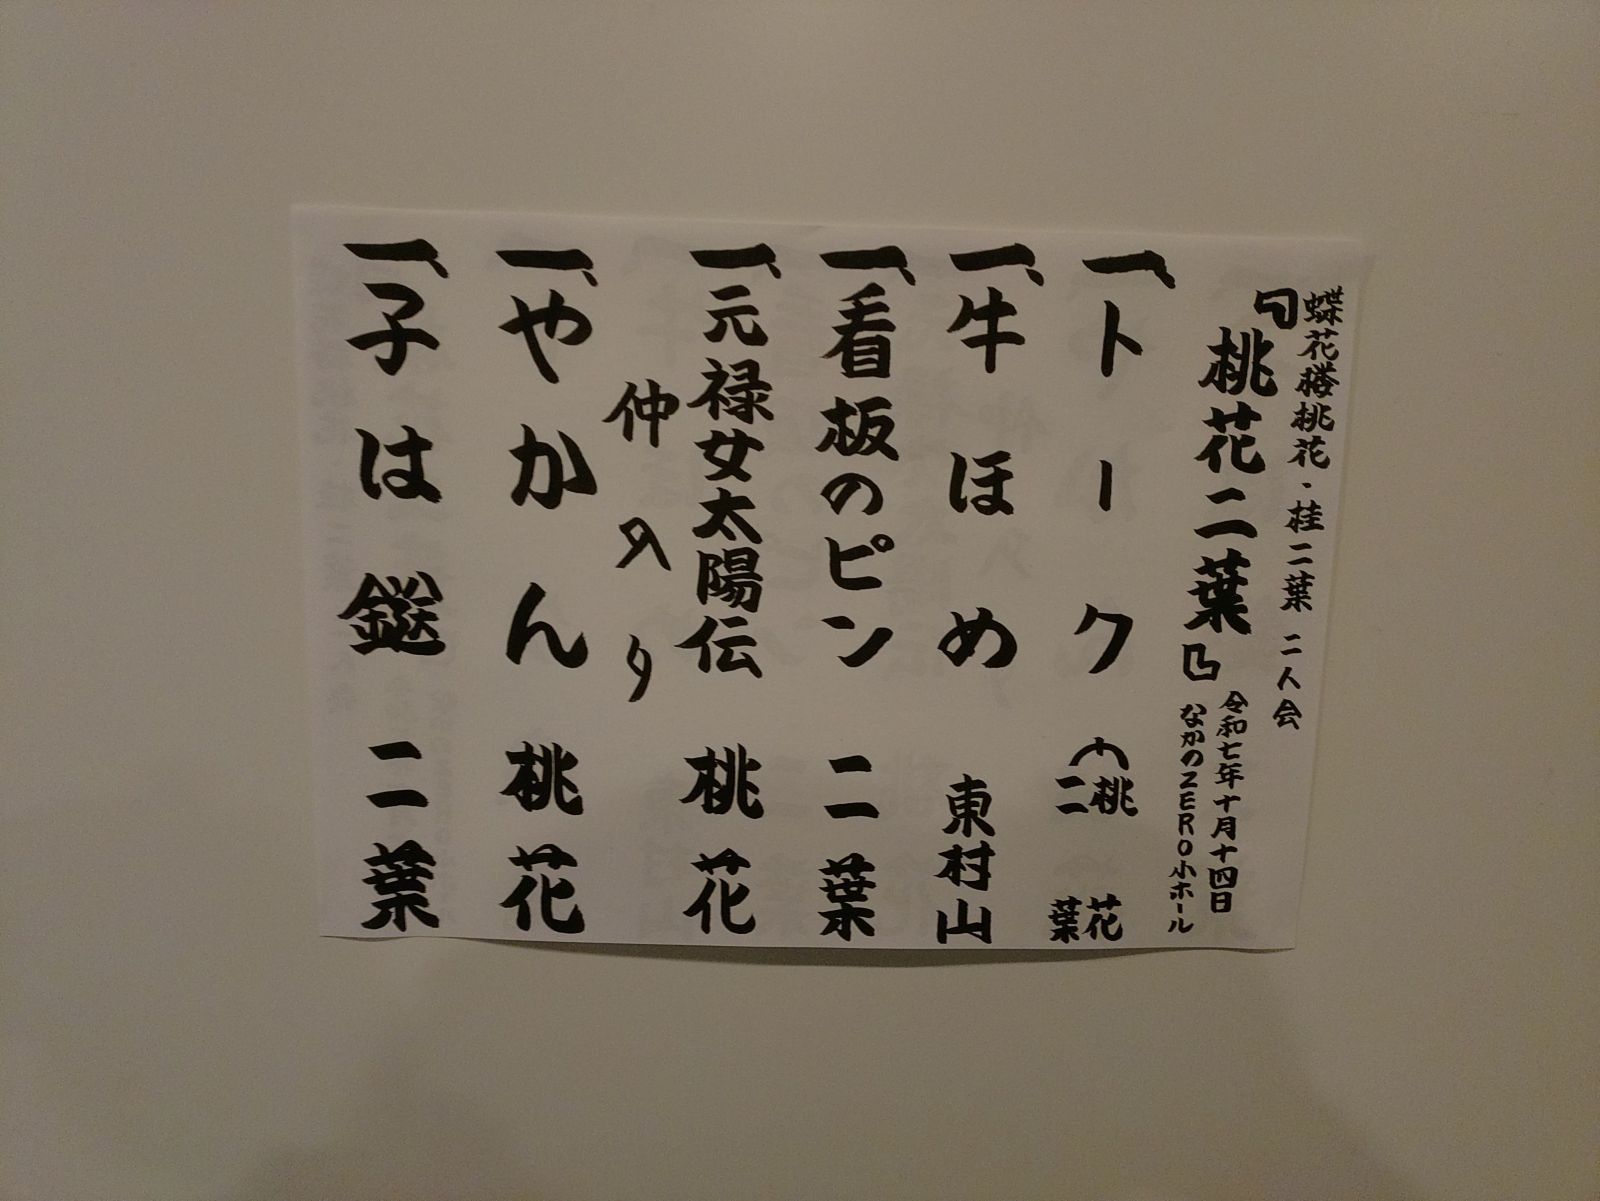 蝶花楼桃花・桂二葉 二人会
『桃花二葉』
令和七年十月十四日
なかのZERO小ホール
一、トーク 桃花 二葉
一、牛ほめ 東村山
一、看板のピン 二葉
一、元禄女太陽伝 桃花
仲入り
一、やかん 桃花
一、子は鎹 二葉